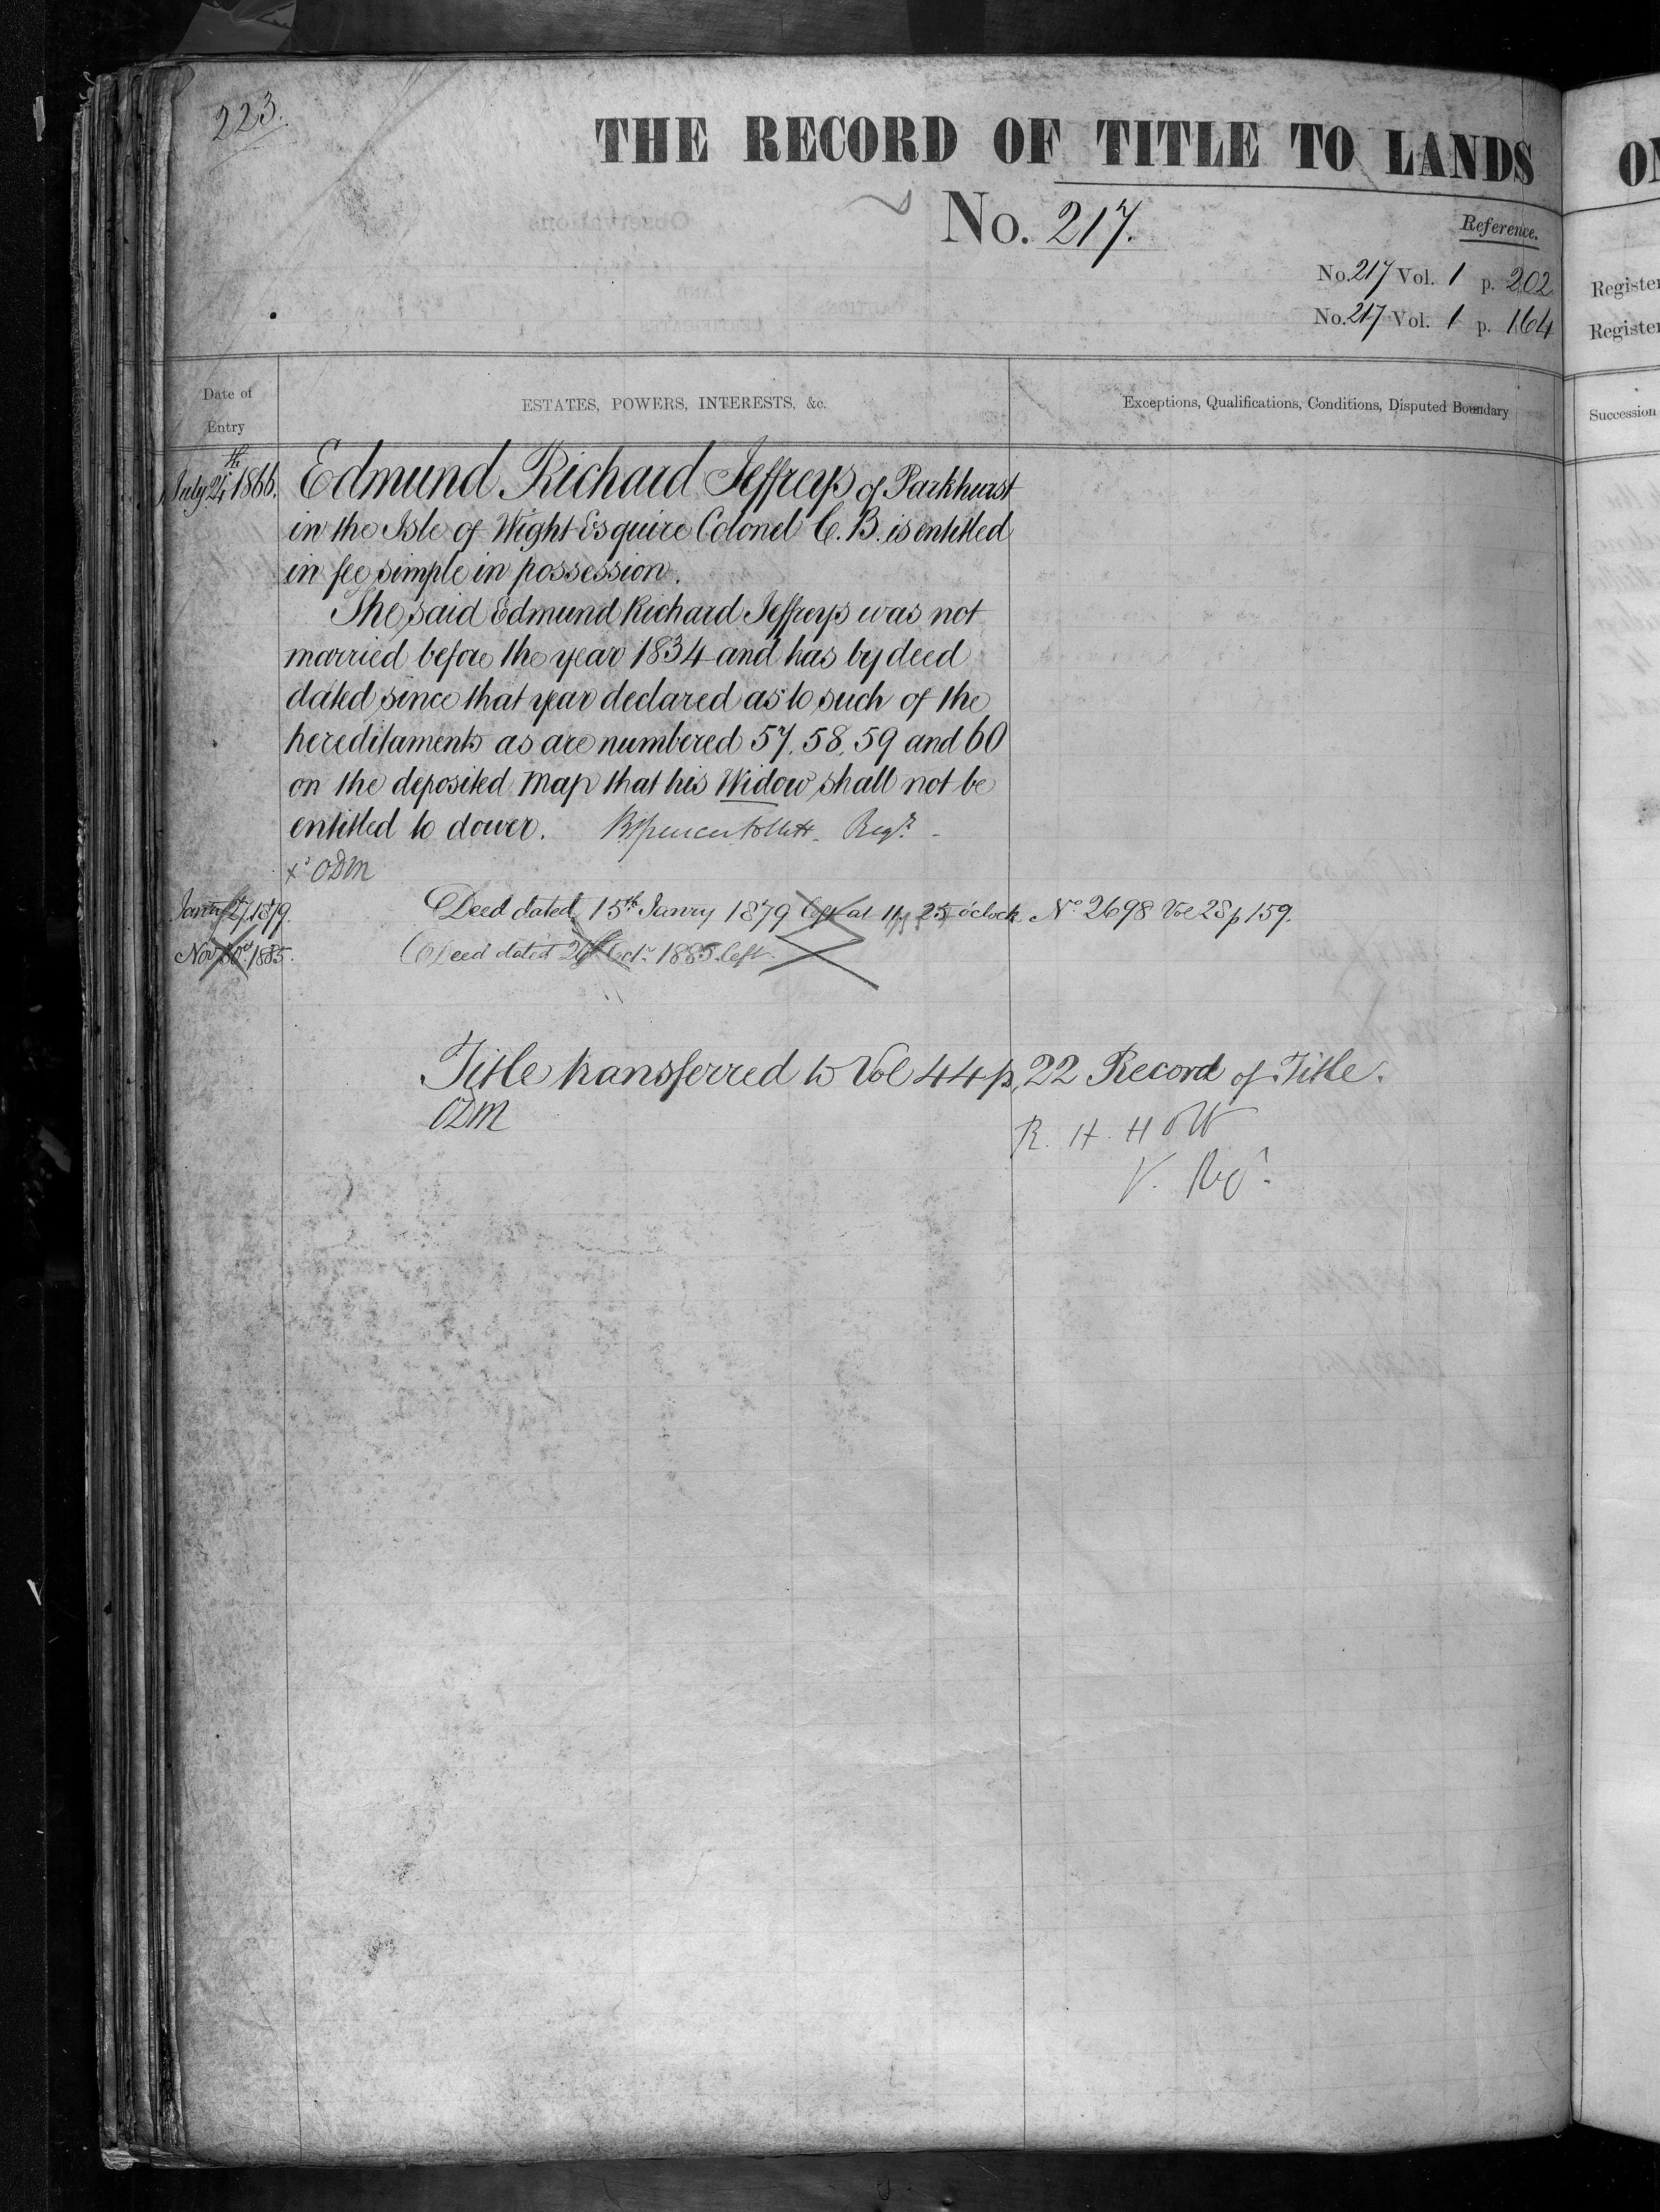 223.
THE RECORD OF TITLE TO LANDS
No. 217.
Reference.
No. 217 Vol. 1 p. 202
No. 217 Vol. 1 p. 164
Register
Register
Date of Entry
ESTATES, POWERS, INTERESTS, &c.
Exceptions, Qualifications, Conditions, Disputed Boundary
Succession
July 24th 1866. Edmund Richard Jeffreys of Parkhurst
in the Isle of Wight Esquire Colonel C. B. is entitled
in fee simple in possession.
The said Edmund Richard Jeffreys was not
married before the year 1834 and has by deed
dated since that year declared as to such of the
hereditaments as are numbered 57, 58, 59 and 60
on the deposited Map that his Widow shall not be
entitled to dower. Regr.
ODM
1879. Deed dated 15th Janry 1879 left at 11, 25 o'clock. No. 2698 Vol 28 p 159.
Nov 1885. Deed dated Octr. 1885 left
Title transferred to Vol 44 p. 22 Record of Title.
ODM
R. H. Holt
V. Regr.